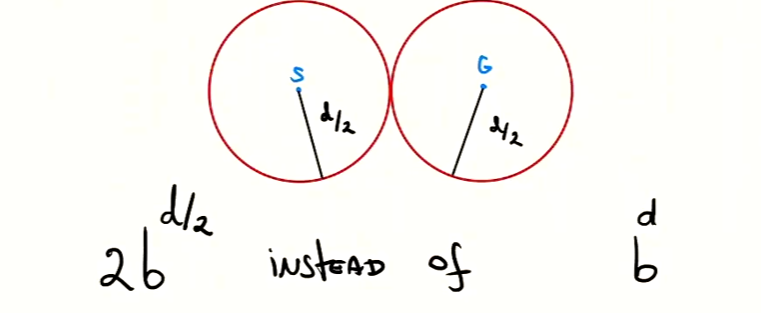 S G
d/2 d/2
2b^d/2 INSTEAD of b^d